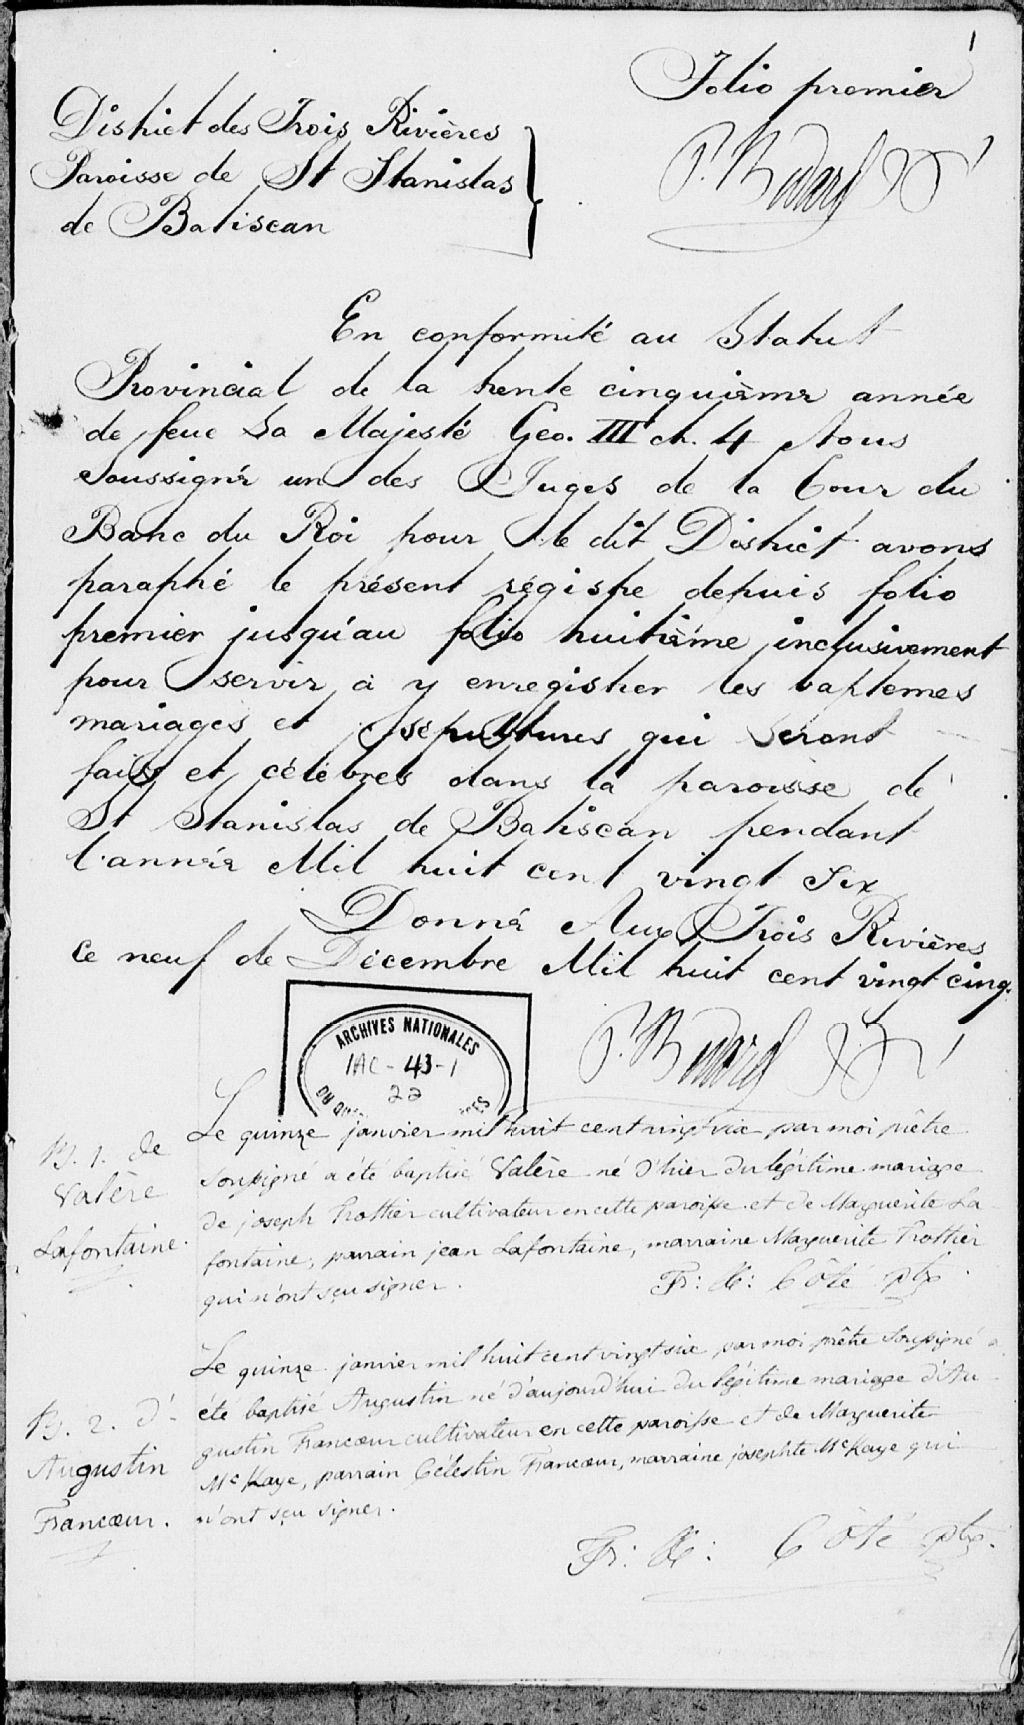 1
Folio premier
P. Bedard
District des Trois Rivières
Paroisse de St Stanislas
de Batiscan
En conformité au Statut
Provincial de la trente cinquième année
de feue Sa Majesté Geo. III ch. 4 Nous
Soussigné un des Juges de la Cour du
Banc du Roi pour le dit District avons
paraphé le présent régistre depuis folio
premier jusqu'au folio huitième inclusivement
pour servir à y enregistrer les baptemes
mariages et sepultures qui seront
faits et célébres dans la paroisse de
St Stanislas de Batiscan pendant
l'année Mil huit cent vingt six
Donné Aux Trois Rivières
Ce neuf de Décembre Mil huit cent vingt cinq.
P. Bedard
ARCHIVES NATIONALES
1AC - 43 - 1
22
B. 1. de
Valère
Lafontaine.
Le quinze janvier mil huit cent vingt six par moi prêtre
soussigné a été baptisé Valère né d'hier du légitime mariage
de joseph Trottier cultivateur en cette paroisse et de Marguerite La
fontaine, parrain jean Lafontaine, marraine Marguerite Trottier
qui n'ont sçu signer.
Fr: X: Côté ptre.
B. 2. d'
Augustin
Francœur.
Le quinze janvier mil huit cent vingt six par moi prêtre soussigné a
été baptisé Augustin né d'aujourd'hui du légitime mariage d'Au
gustin Francœur cultivateur en cette paroisse et de Marguerite
Mc Kaye, parrain Célestin Francœur, marraine josephte Mc Kaye qui
n'ont sçu signer.
Fr: X: Côté ptre.